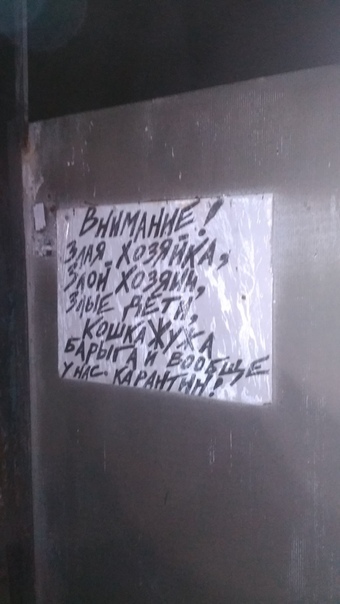 ВНИМАНИЕ!
ЗЛАЯ ХОЗЯЙКА,
ЗЛОЙ ХОЗЯИН,
ЗЛЫЕ ДЕТИ,
КОШКА ЖУЖА
БАРЫГА И ВООБЩЕ
У НАС КАРАНТИН!